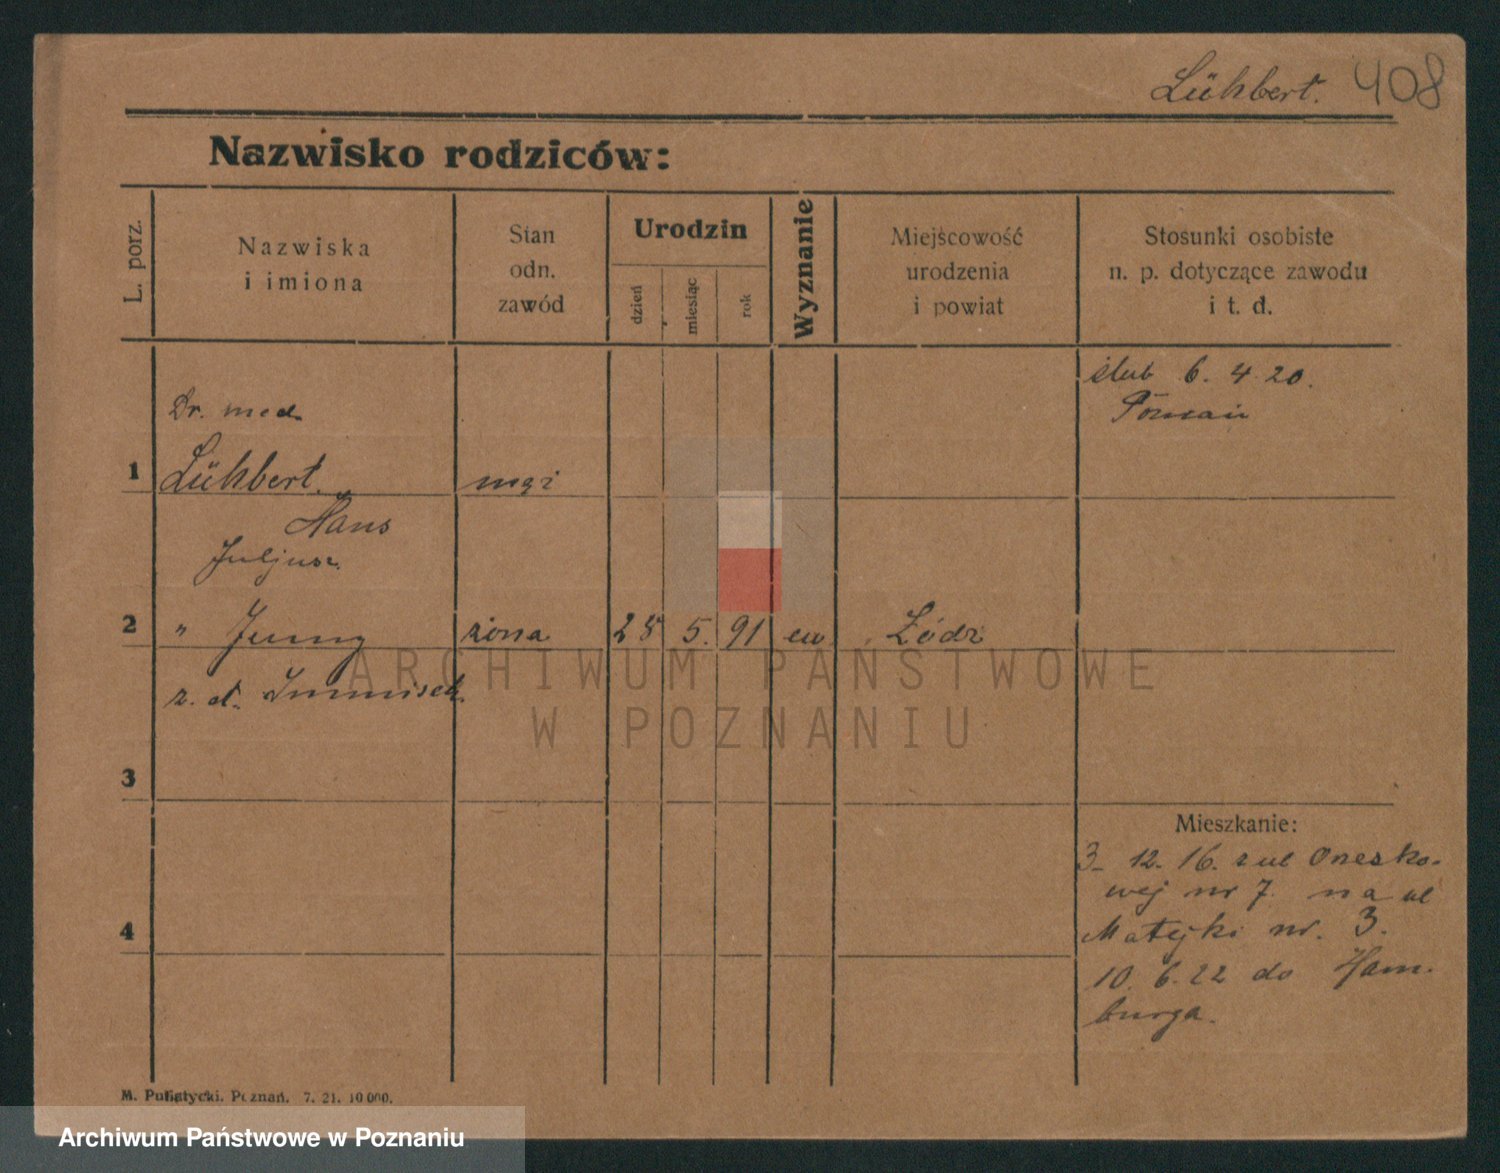 Lühbert. 408
Nazwisko rodziców:
L. porz.
Nazwiska
i imiona
Stan
odn.
zawód
Urodzin
dzień
miesiąc
rok
Wyznanie
Miejscowość
urodzenia
i powiat
Stosunki osobiste
n. p. dotyczące zawodu
i t. d.
ślub 6. 4. 20.
Poznań
Dr. med.
1 Lühbert. mąż
Hans
Juljusz.
2 " Jenny żona 28 5. 91 ew Łódź
z. d. Immisch
3
4
Mieszkanie:
3. 12. 16. z ul
wej nr 7. na ul
Matejki nr. 3.
10. 6. 22 do Ham-
burga.
M. Putiatycki. Poznań. 7. 21. 10 000.
ARCHIWUM PAŃSTWOWE
W POZNANIU
Archiwum Państwowe w Poznaniu